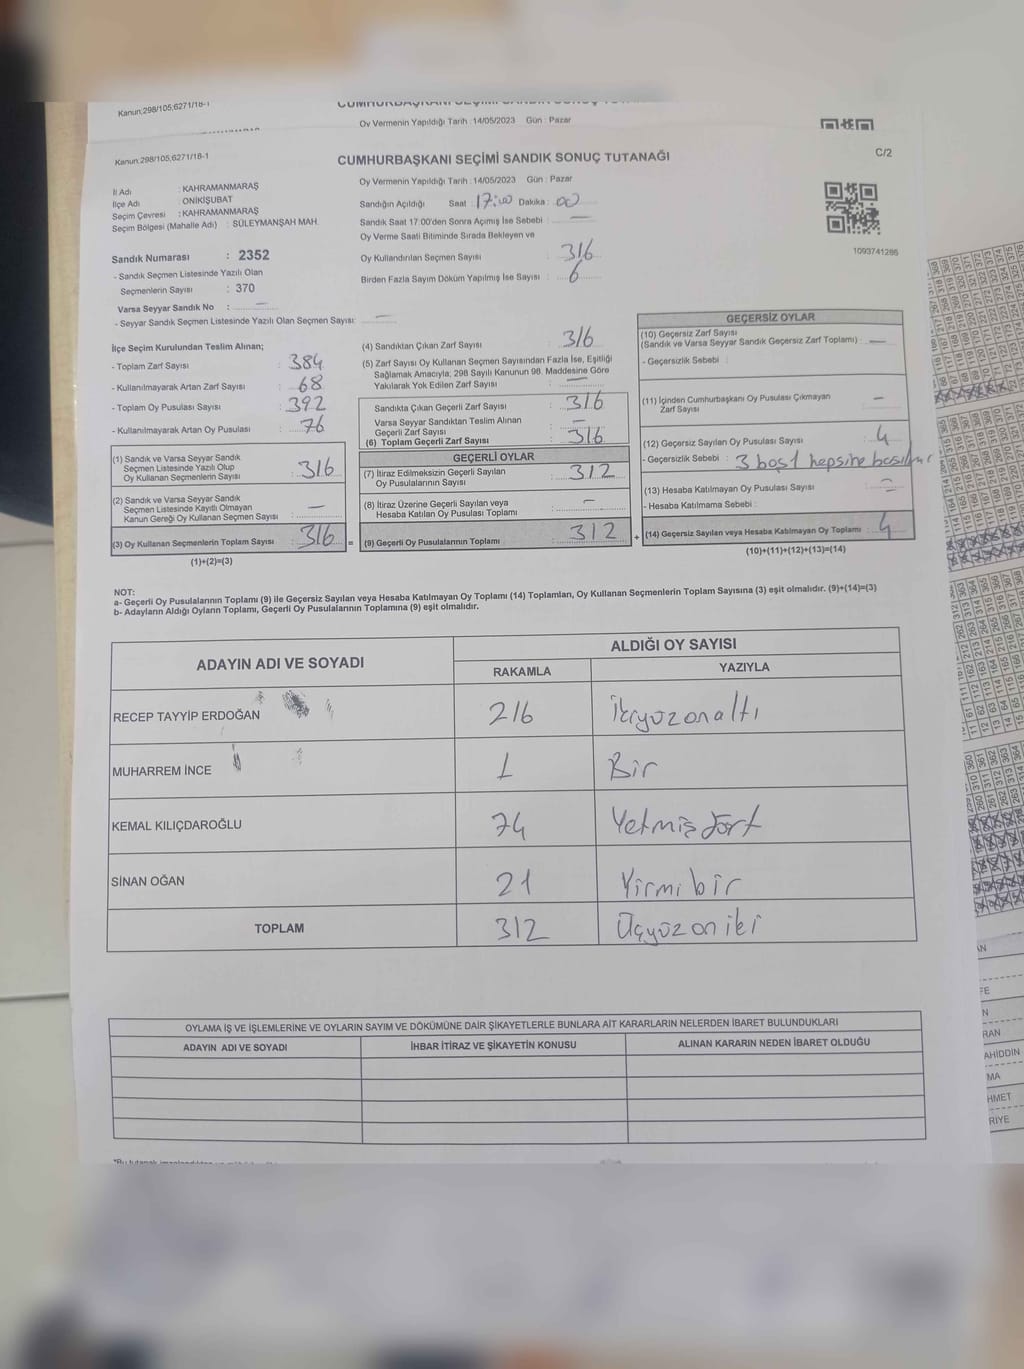 Kanun;298/105;6271/18-1
Oy Vermenin Yapıldığı Tarih :14/05/2023 Gün : Pazar
Kanun;298/105;6271/18-1
CUMHURBAŞKANI SEÇİMİ SANDIK SONUÇ TUTANAĞI
C/2
İl Adı : KAHRAMANMARAŞ
İlçe Adı : ONİKİŞUBAT
Seçim Çevresi : KAHRAMANMARAŞ
Seçim Bölgesi (Mahalle Adı) : SÜLEYMANŞAH MAH.
Oy Vermenin Yapıldığı Tarih :14/05/2023 Gün : Pazar
Sandığın Açıldığı Saat : 17:00 Dakika : 00
Sandık Saat 17.00'den Sonra Açımış İse Sebebi : —
Oy Verme Saati Bitiminde Sırada Bekleyen ve
Oy Kullandırılan Seçmen Sayısı : 316
Birden Fazla Sayım Döküm Yapılmış İse Sayısı : 6
1093741286
Sandık Numarası : 2352
- Sandık Seçmen Listesinde Yazılı Olan
Seçmenlerin Sayısı : 370
Varsa Seyyar Sandık No : —
- Seyyar Sandık Seçmen Listesinde Yazılı Olan Seçmen Sayısı: —
İlçe Seçim Kurulundan Teslim Alınan;
- Toplam Zarf Sayısı : 384
- Kullanılmayarak Artan Zarf Sayısı : 68
- Toplam Oy Pusulası Sayısı : 392
- Kullanılmayarak Artan Oy Pusulası : 76
(1) Sandık ve Varsa Seyyar Sandık
Seçmen Listesinde Yazılı Olup
Oy Kullanan Seçmenlerin Sayısı : 316
(2) Sandık ve Varsa Seyyar Sandık
Seçmen Listesinde Kayıtlı Olmayan
Kanun Gereği Oy Kullanan Seçmen Sayısı : —
(3) Oy Kullanan Seçmenlerin Toplam Sayısı : 316 =
(1)+(2)=(3)
(4) Sandıktan Çıkan Zarf Sayısı : 316
(5) Zarf Sayısı Oy Kullanan Seçmen Sayısından Fazla İse, Eşitliği
Sağlamak Amacıyla; 298 Sayılı Kanunun 98. Maddesine Göre
Yakılarak Yok Edilen Zarf Sayısı : —
Sandıkta Çıkan Geçerli Zarf Sayısı : 316
Varsa Seyyar Sandıktan Teslim Alınan
Geçerli Zarf Sayısı : —
(6) Toplam Geçerli Zarf Sayısı : 316
GEÇERLİ OYLAR
(7) İtiraz Edilmeksizin Geçerli Sayılan
Oy Pusulalarının Sayısı : 312
(8) İtiraz Üzerine Geçerli Sayılan veya
Hesaba Katılan Oy Pusulası Toplamı : —
(9) Geçerli Oy Pusulalarının Toplamı : 312 +
GEÇERSİZ OYLAR
(10) Geçersiz Zarf Sayısı
(Sandık ve Varsa Seyyar Sandık Geçersiz Zarf Toplamı) : —
- Geçersizlik Sebebi :
(11) İçinden Cumhurbaşkanı Oy Pusulası Çıkmayan
Zarf Sayısı : —
(12) Geçersiz Sayılan Oy Pusulası Sayısı : 4
- Geçersizlik Sebebi : 3 boş 1 hepsine
(13) Hesaba Katılmayan Oy Pusulası Sayısı : —
- Hesaba Katılmama Sebebi :
(14) Geçersiz Sayılan veya Hesaba Katılmayan Oy Toplamı : 4
(10)+(11)+(12)+(13)=(14)
NOT:
a- Geçerli Oy Pusulalarının Toplamı (9) ile Geçersiz Sayılan veya Hesaba Katılmayan Oy Toplamı (14) Toplamları, Oy Kullanan Seçmenlerin Toplam Sayısına (3) eşit olmalıdır. (9)+(14)=(3)
b- Adayların Aldığı Oyların Toplamı, Geçerli Oy Pusulalarının Toplamına (9) eşit olmalıdır.
ADAYIN ADI VE SOYADI
ALDIĞI OY SAYISI
RAKAMLA YAZIYLA
RECEP TAYYİP ERDOĞAN 216 İkiyüzonaltı
MUHARREM İNCE 1 Bir
KEMAL KILIÇDAROĞLU 74 Yetmiş dört
SİNAN OĞAN 21 Yirmi bir
TOPLAM 312 Üçyüz on iki
OYLAMA İŞ VE İŞLEMLERİNE VE OYLARIN SAYIM VE DÖKÜMÜNE DAİR ŞİKAYETLERLE BUNLARA AİT KARARLARIN NELERDEN İBARET BULUNDUKLARI
ADAYIN ADI VE SOYADI İHBAR İTİRAZ VE ŞİKAYETİN KONUSU ALINAN KARARIN NEDEN İBARET OLDUĞU